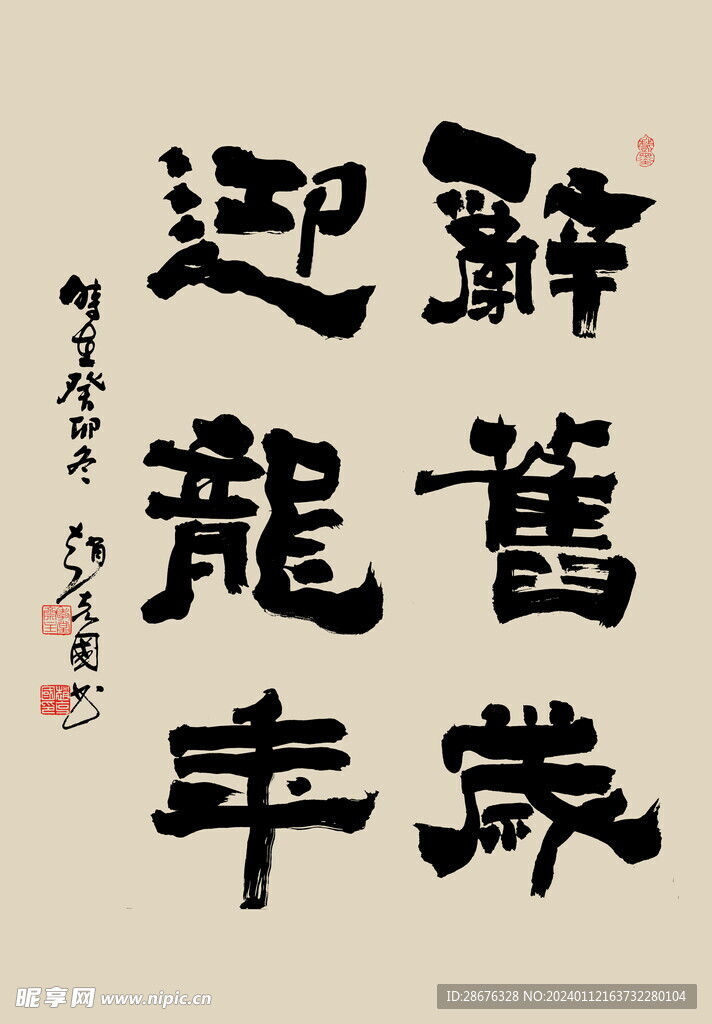 辭舊歲
迎龍年
時在癸卯冬 趙志國书
昵享网 www.nipic.cn
ID:28676328 NO:20240112163732280104